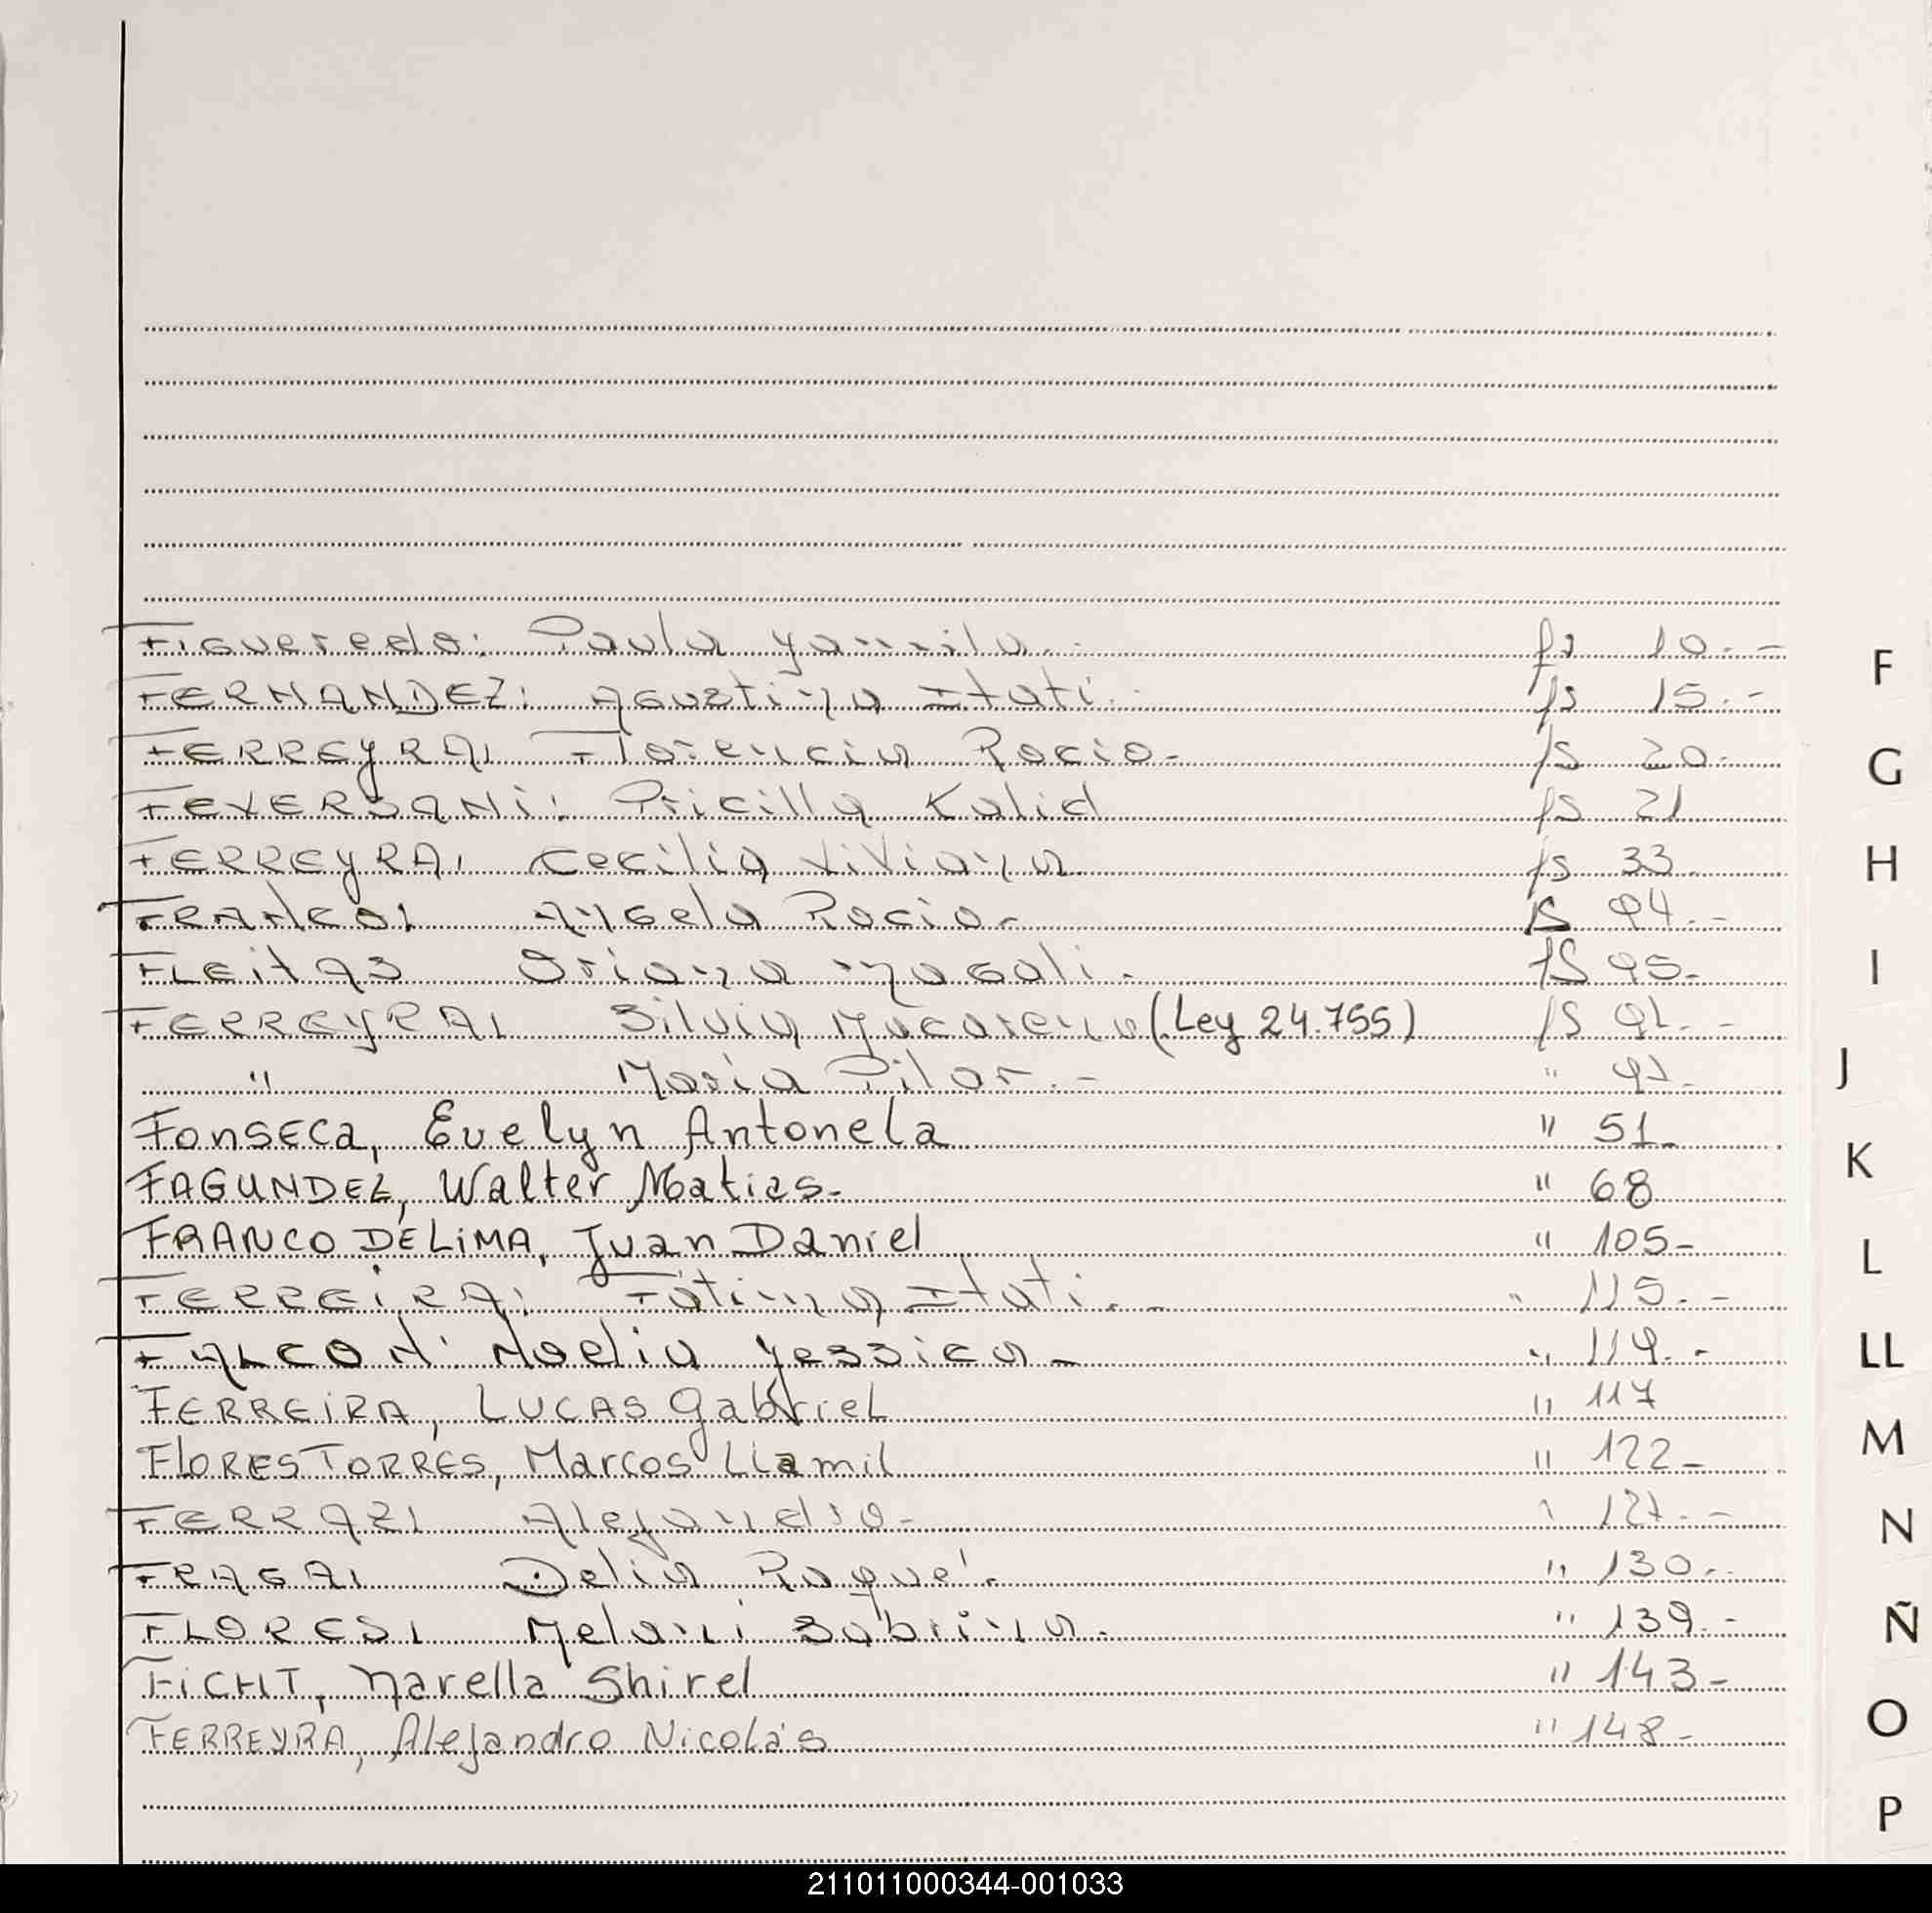 Figueredo: Paula Yamila.- fs 10.-
FERNANDEZ: Agustina Itati.- fs 15.-
FERREYRA: Florencia Rocio.- fs 20.-
FEVERSANI: Pricilla Kalid fs 21
FERREYRA: Cecilia Viviana fs 33
FRANCO: Angela Rocio.- fs 94.-
FLEITAS Oriana Magali.- fs 95.-
FERREYRA: Silvia Macarena (Ley 24.755) fs 91.-
" Maria Pilar.- " 91.-
Fonseca, Evelyn Antonela " 51-
FAGUNDEZ, Walter Matias- " 68
FRANCO DE LIMA, Juan Daniel " 105-
FERREIRA: Fátima Itati.- " 115.-
FALCON: Noelia Yessica- " 119.-
FERREIRA, LUCAS Gabriel " 117
FLORES TORRES, Marcos Llamil " 122-
FERRAZ: Alejandro- " 127.-
FRAGA: Delia Roque.- " 130.-
FLORES: Melani Sabrina. " 139.-
FICHT, Narella Shirel " 143-
FERREYRA, Alejandro Nicolás " 148-
F
G
H
I
J
K
L
LL
M
N
Ñ
O
P
211011000344-001033